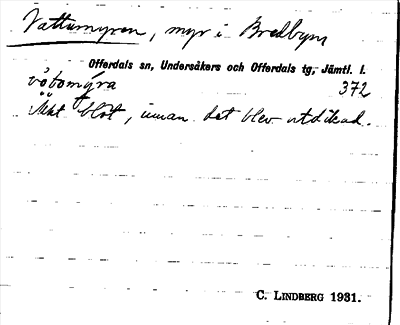 Vattumyren, myr i Bredbyn
Offerdals sn, Undersåkers och Offerdals tg, Jämtl. l.
vòtomýra 372
Mkt blöt, innan det blev utdikad.
C. LINDBERG 1931.